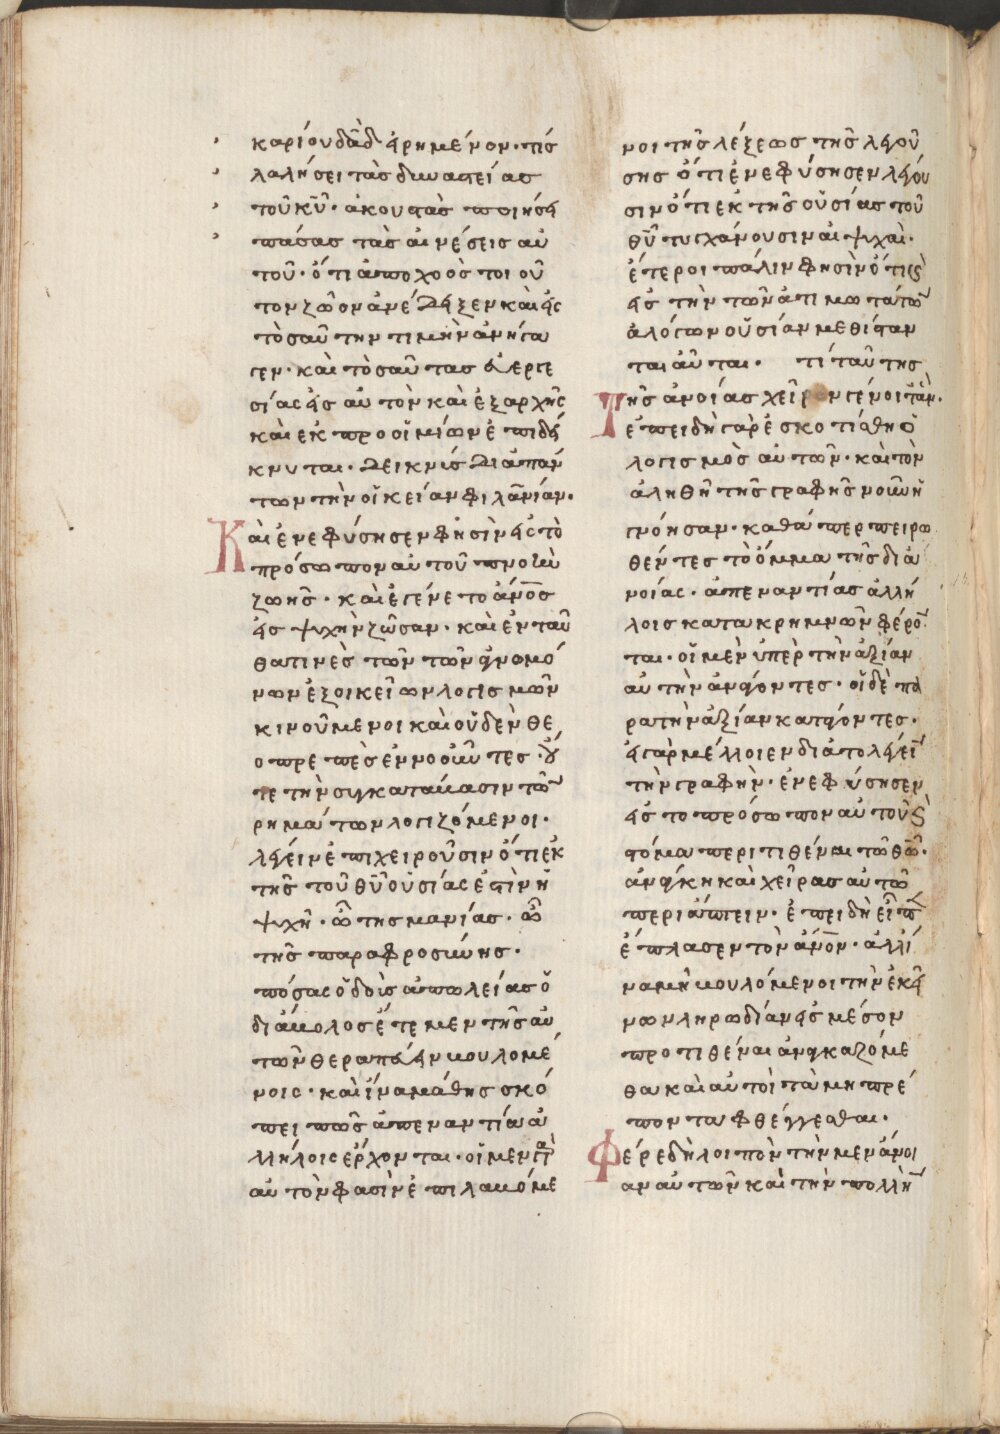 καρίου δᾶδ εἰρημένον· τίς
λαλήσει τὰς δυναστείας
τοῦ κῦ· ἀκουστὰς ποιήσει
πάσας τὰς αἰνέσεις αὐ
τοῦ· ὅτι ἀπὸ χοὸς τοιοῦ
τον ζῶον ἀνέδειξεν καὶ εἰς
τοσαύτην τιμὴν ἀνήγα
γεν· καὶ τοσαύτας εὐεργε
σίας εἰς αὐτὸν καὶ ἐξαρχῆς
καὶ ἐκ προοιμίων ἐπιδεί
κνυται· δεικνὺς διἁπάν
των τὴν οἰκείαν φιλανίαν·
Καὶ ἐνεφύσησεν φησὶν εἰς τὸ
πρόσωπον αὐτοῦ πνοὴν
ζωῆς· καὶ ἐγένετο ὁ ἄνος
εἰς ψυχὴν ζῶσαν· καὶ ἐνταῦ
θα τινὲς τῶν τῶν φερομέ
νων ἐξ οἰκείων λογισμῶν
κινούμενοι καὶ οὐδὲν θε
οπρεπὲς ἐννοοῦντες· οὔ
τε τὴν συγκατάβασιν τῶν
ρημάτων λογιζόμενοι·
λέγειν ἐπιχειροῦσιν ὅτι ἐκ
τῆς τοῦ θῦ οὐσίας ἐστὶν ἡ
ψυχή· ὢ τῆς μανίας· ὢ
τῆς παραφροσύνης·
πόσας ὁδοὺς ἀπωλείας ὁ
διάβολος ἔτεμεν τοῖς αὐ
τῶ θεραπεύειν βουλομέ
νοις· καὶ ἵνα μάθης σκό
πει πῶς ἀπεναντίας ἀ
λλήλοις ἔρχονται· οἱ μὲν γὰρ
αὐτὸν φασὶν ἐπιλαβόμε
νοι τῆς λέξεως τῆς λεγού
σης ὅτι ἐνεφύσησεν λέγου
σιν ὅτι ἐκ τῆς οὐσίας τοῦ
θῦ τυγχάνουσιν αἱ ψυχαί·
ἕτεροι πάλιν φησὶν ὅτι καὶ
εἰς τὴν τῶν ἀτιμωτάτων
ἀλόγων οὐσίαν μεθίσταν
ται αὗται· τί ταύτης
Τῆς ἀνοίας χεῖρον γένοιτ ἄν·
ἐπειδὴ γὰρ ἐσκοτίσθη ὁ
λογισμὸς αὐτῶν· καὶ τὸν
ἀληθῆ τῆς γραφῆς νοῦν ἠ
γνόησαν· καθάπερ πειρω
θέντες τὸ ὄμμα τῆς δια
νοίας· ἀπεναντίας ἀλλή
λοις κατὰ κρημνῶν φέρον
ται· οἱ μὲν ὑπὲρ τὴν ἀξίαν
αὐτὴν ἀνάγοντες· οἱ δὲ πα
ρα τὴν ἀξίαν κατάγοντες·
εἰ γὰρ μέλλοιεν διὰ τὸ λέγειν
τὴν γραφὴν· ἐνεφύσησεν
εἰς τὸ πρόσωπον αὐτοῦ καὶ
στόμα περιτιθέναι τῶ θῶ·
ἀνάγκη καὶ χεῖρας αὐτῶ
περιάπτειν· ἐπειδὴ εἶπεν
ἔπλασεν τὸν ἄνον· ἀλλἵ
να μὴ βουλόμενοι τὴν ἐκεί
νων ληρωδίαν εἰς μέσον
προτιθέναι ἀναγκαζόμε
θα καὶ αὐτοὶ τὰ μὴ πρέ
ποντα φθέγγεσθαι·
Φέρε δὴ λοιπὸν τὴν μὲν ἄνοι
αν αὐτῶν καὶ τὴν πολλὴν